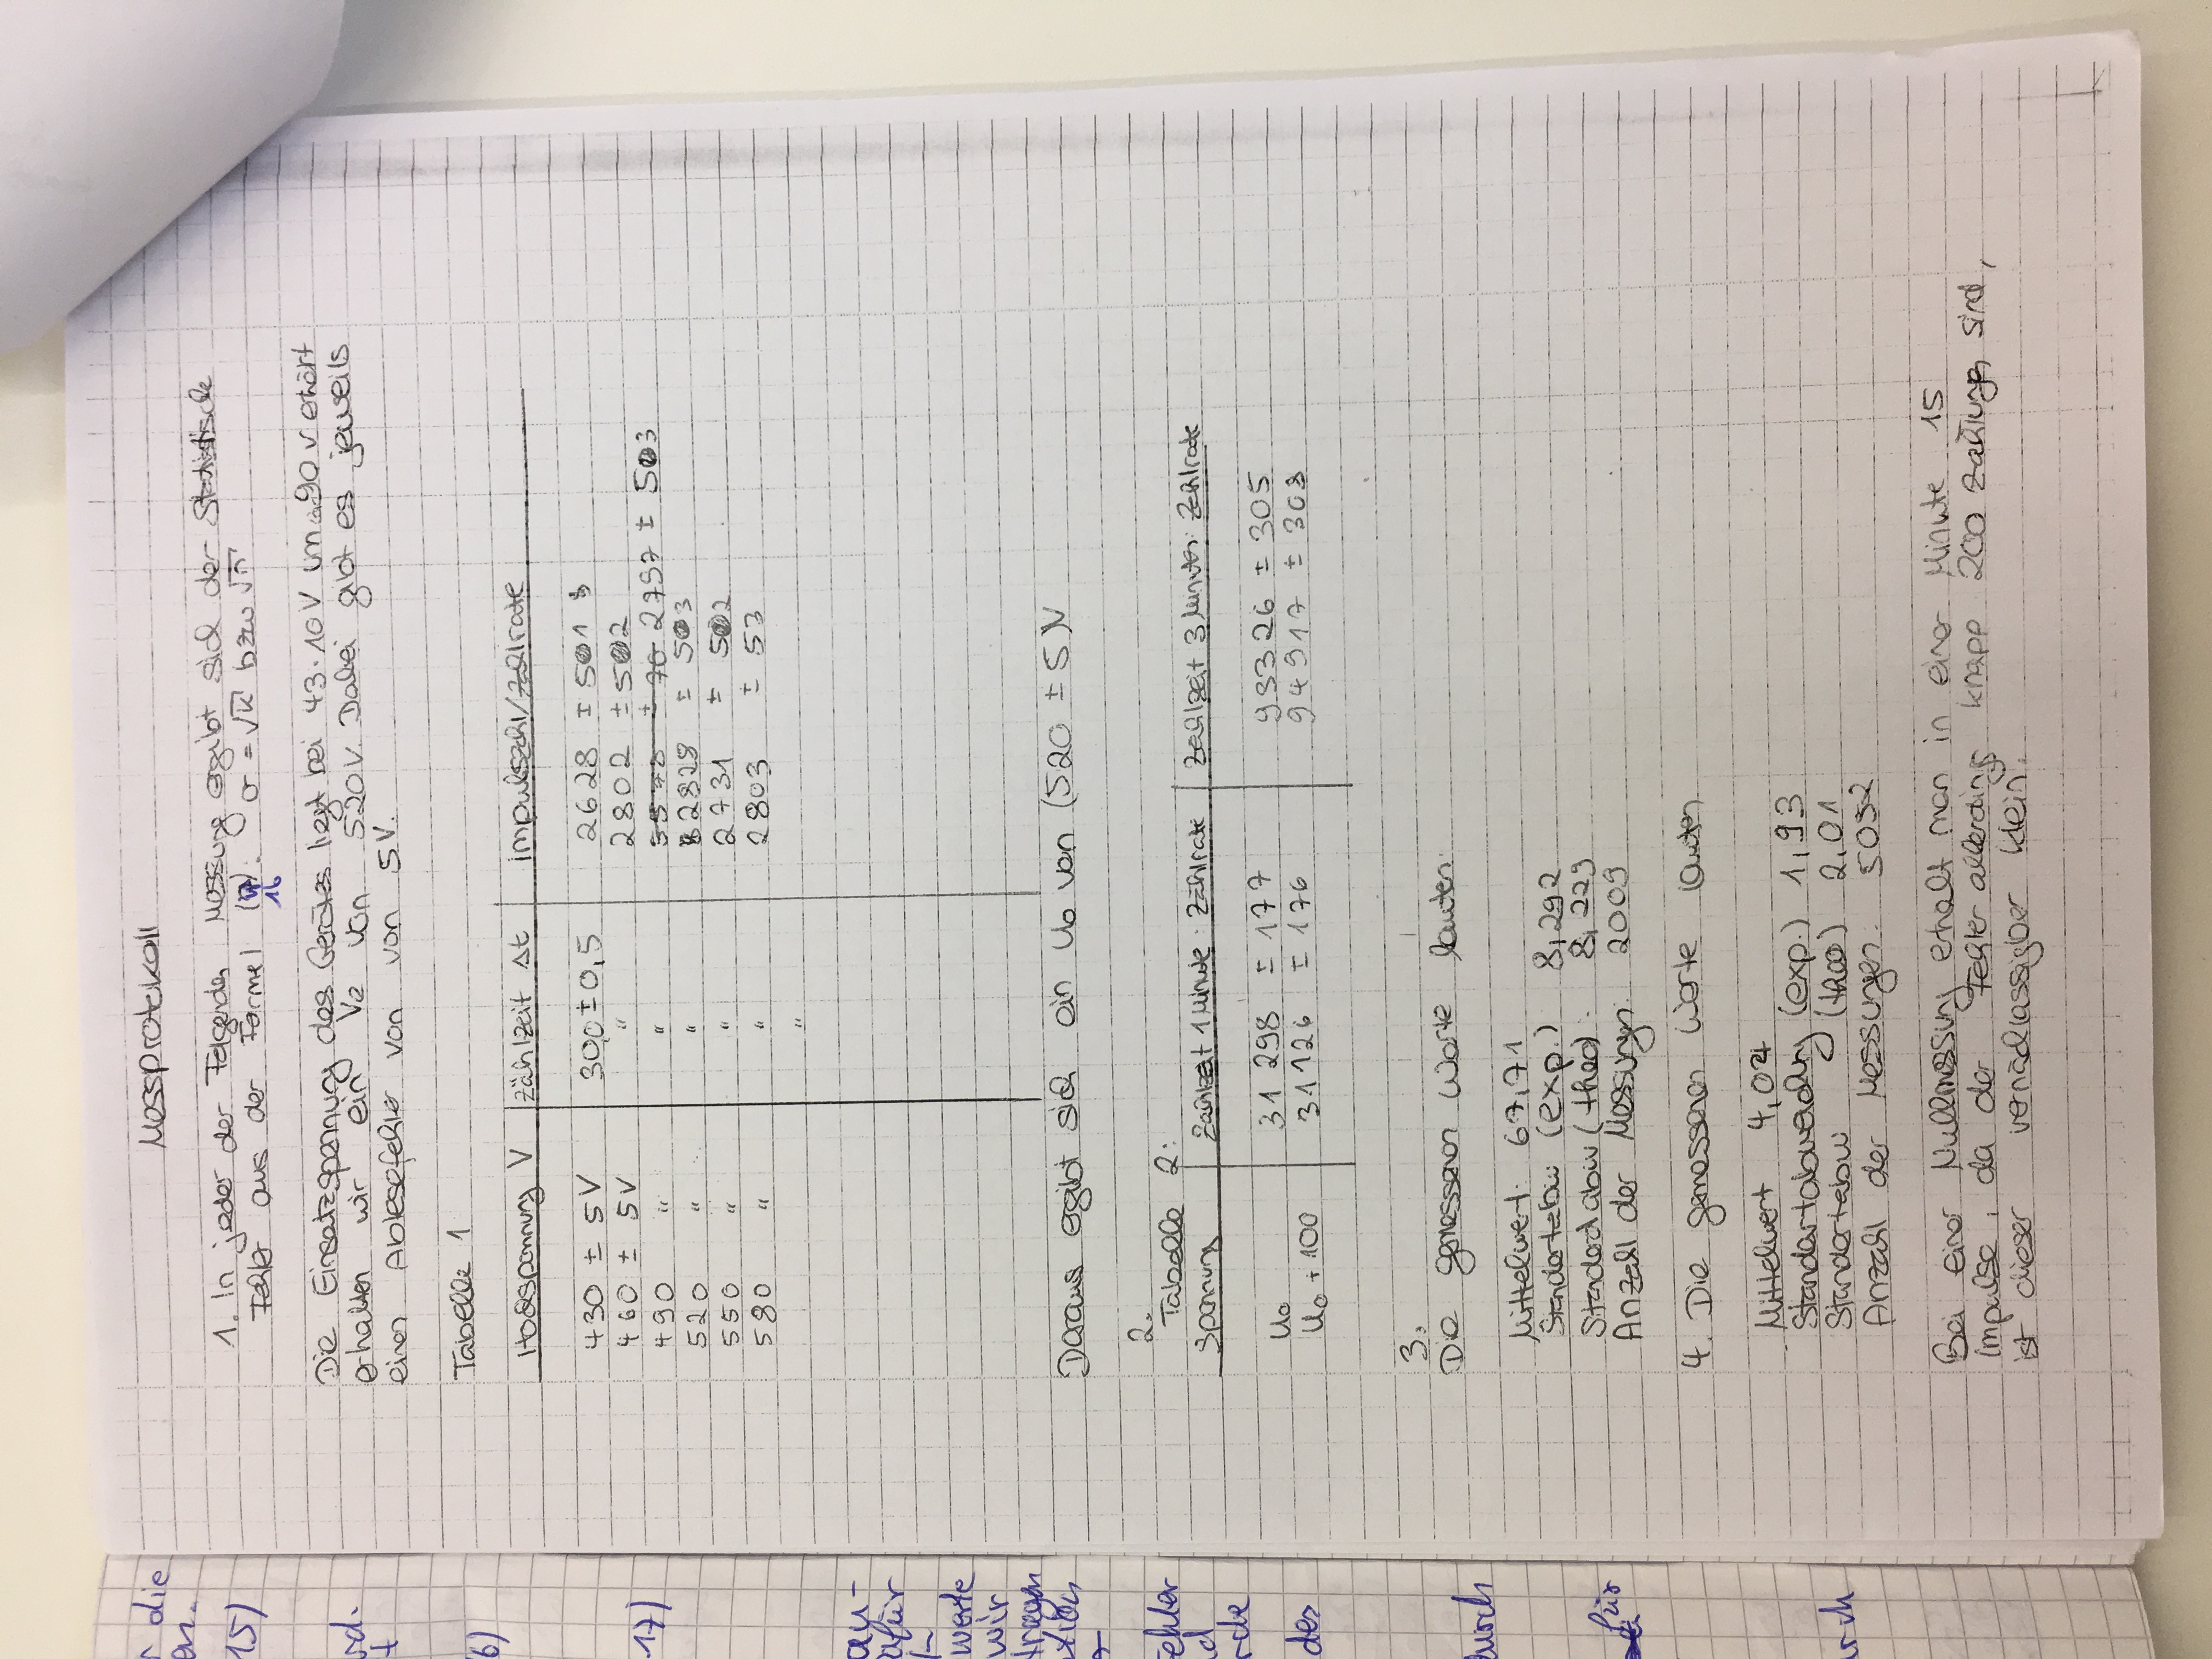 r die
en.
15)
rd.
t
6)
17)
au-
afür
werte
wir
tragen
ehler
d
rde
des
durch
für
urch
Messprotokoll
1. In jeder der Folgenden Messung ergibt sich der Statistische
Fehler aus der Formel (16): σ = √k bzw √n
Die Einsatzspannung des Gerätes liegt bei 43·10V um 90 V erhört
erhalten wir ein Ve von 520V. Dabei gibt es jeweils
einen Ablesefehler von von 5V.
Tabelle 1
Hochspannung V Zählzeit Δt Impulszahl/Zählrate
430 ± 5V 30,0 ± 0,5 2628 ± 51
460 ± 5V " 2802 ± 52
490 " " 2797 ± 53
520 " " 2828 ± 53
550 " " 2731 ± 52
580 " " 2803 ± 53
"
Daraus ergibt sich ein U0 von (520 ± 5)V
2.
Tabelle 2:
Spannung Zählzeit 1 Minute: Zählrate Zählzeit 3 Minuten: Zählrate
U0 31 298 ± 177 93326 ± 305
U0 + 100 31126 ± 176 94917 ± 308
3.
Die gemessenen Werte lauten:
Mittelwert: 67,71
Standartabw (exp.) 8,292
Standardabw (theo): 8,229
Anzahl der Messungen: 2009
4. Die gemessenen Werte lauten
Mittelwert 4,04
Standartabweichung (exp.) 1,93
Standartabw (theo) 2,01
Anzahl der Messungen: 5052
Bei einer Nullmessung erhält man in einer Minute 15
Impulse, da der Fehler allerdings knapp 200 Zählungen sind,
ist dieser vernachlässigber klein.